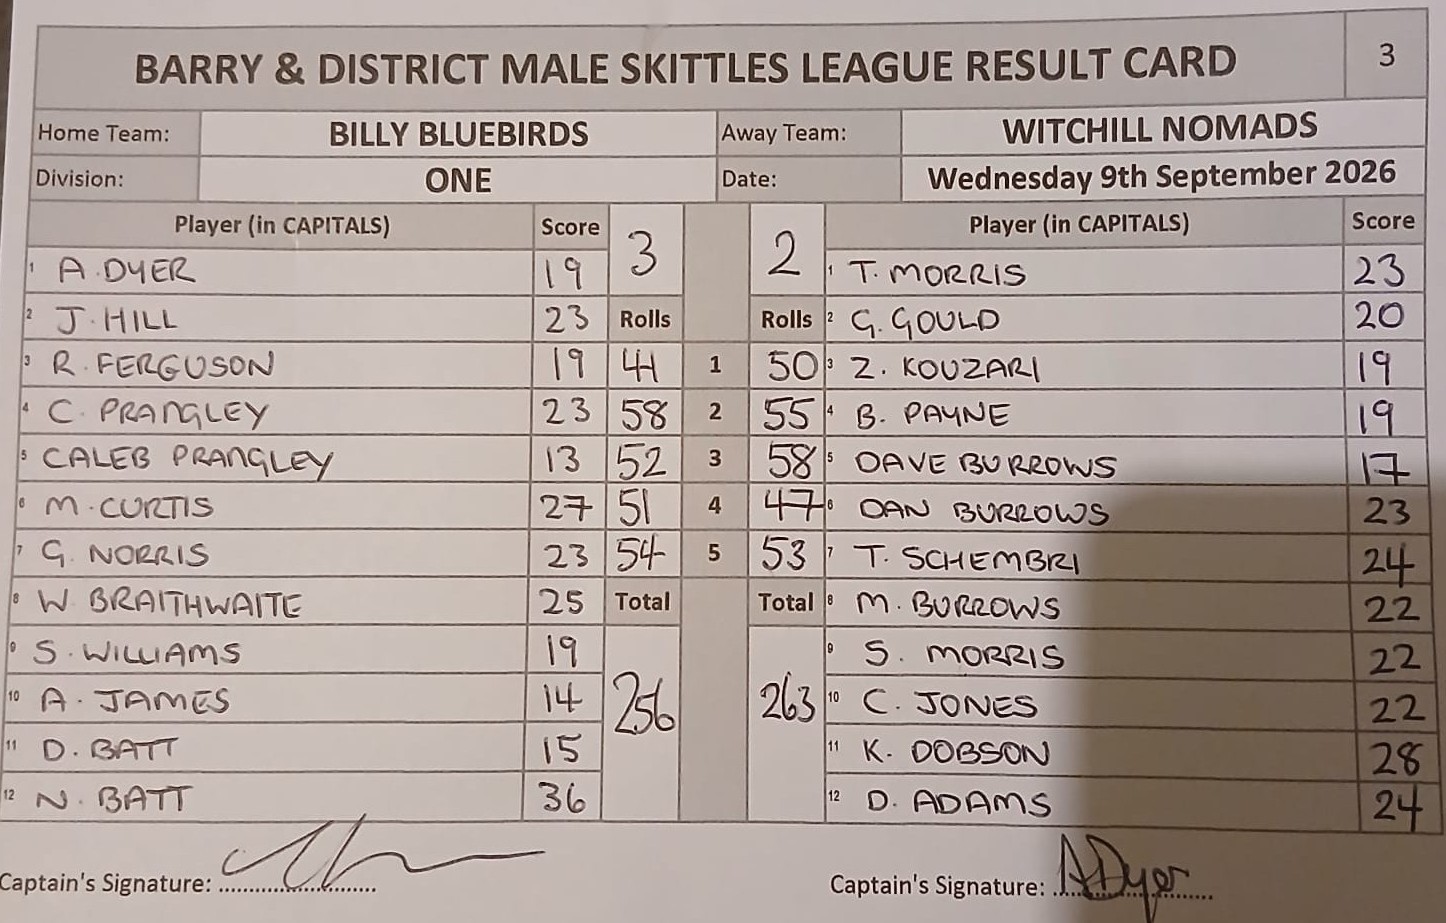 BARRY & DISTRICT MALE SKITTLES LEAGUE RESULT CARD 3
Home Team: BILLY BLUEBIRDS Away Team: WITCHILL NOMADS
Division: ONE Date: Wednesday 9th September 2026
Player (in CAPITALS) Score 3 2 Player (in CAPITALS) Score
1 A. DYER 19 1 T. MORRIS 23
2 J. HILL 23 Rolls Rolls 2 G. GOULD 20
3 R. FERGUSON 19 41 1 50 3 Z. KOUZARI 19
4 C. PRANGLEY 23 58 2 55 4 B. PAYNE 19
5 CALEB PRANGLEY 13 52 3 58 5 DAVE BURROWS 17
6 M. CURTIS 27 51 4 47 6 DAN BURROWS 23
7 G. NORRIS 23 54 5 53 7 T. SCHEMBRI 24
8 W. BRAITHWAITE 25 Total Total 8 M. BURROWS 22
9 S. WILLIAMS 19 9 S. MORRIS 22
10 A. JAMES 14 256 263 10 C. JONES 22
11 D. BATT 15 11 K. DOBSON 28
12 N. BATT 36 12 D. ADAMS 24
Captain's Signature: Captain's Signature: A Dyer